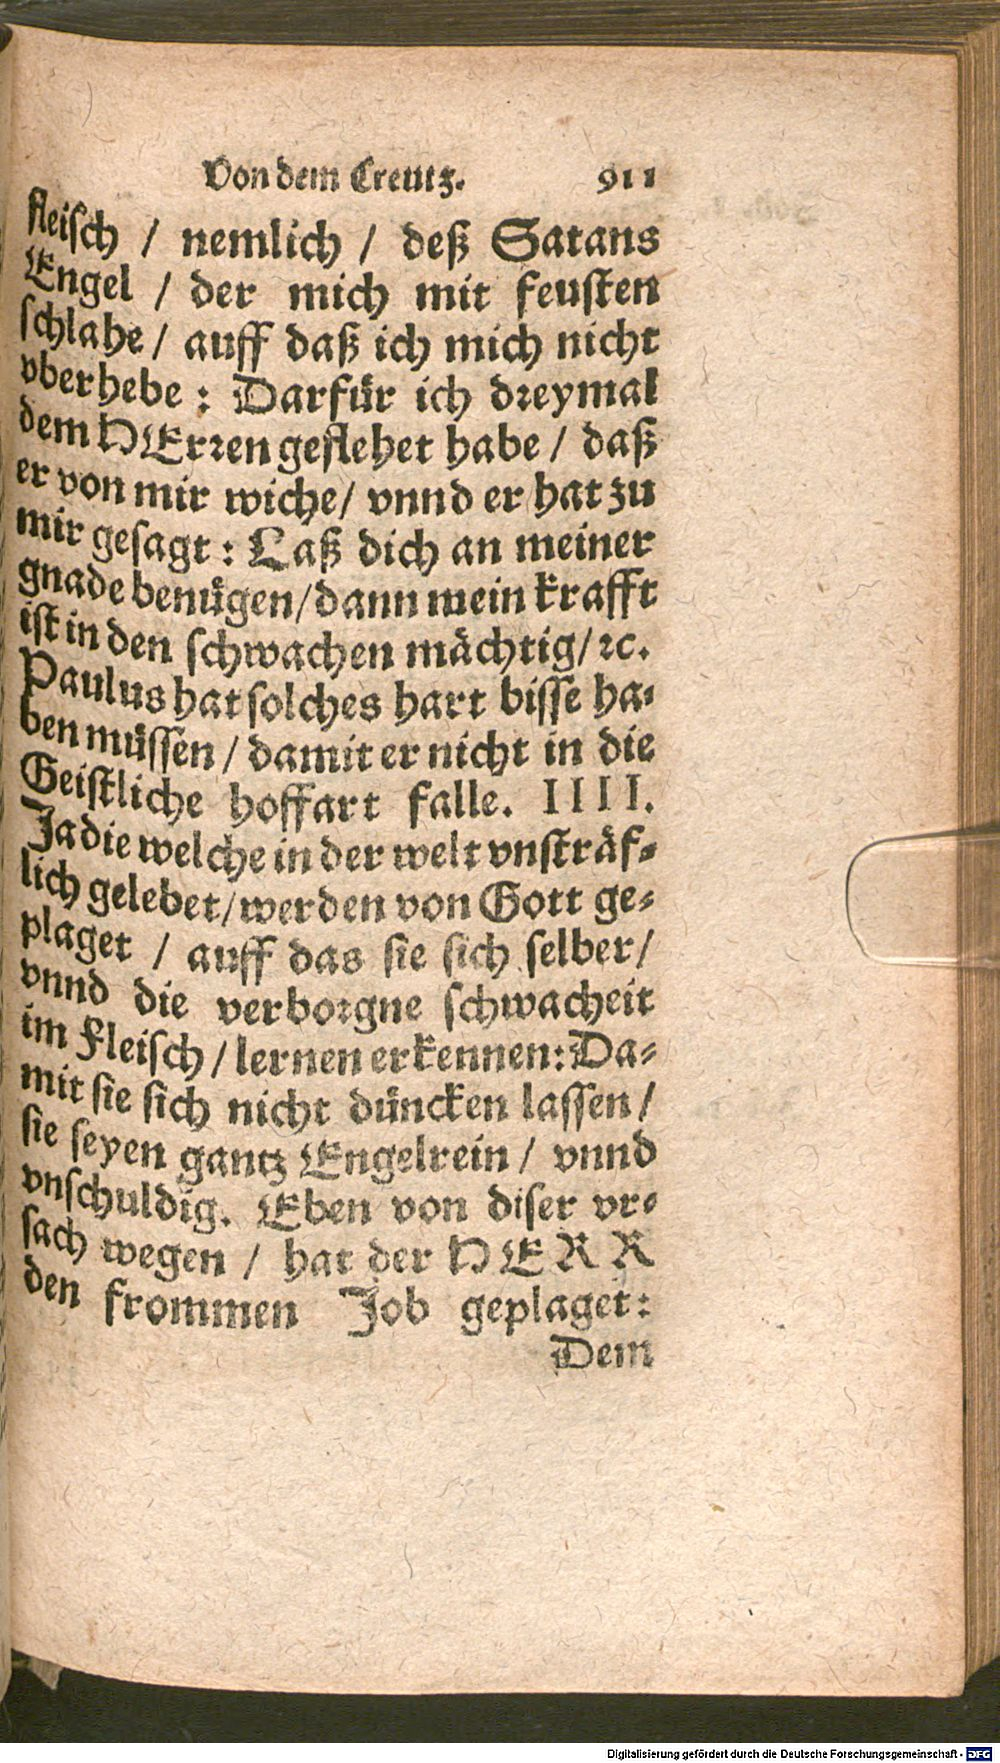 Von dem Creutz. 911
fleisch / nemlich / deß Satans
Engel / der mich mit feusten
schlahe / auff daß ich mich nicht
vberhebe : Darfür ich dreymal
dem HErren geflehet habe / daß
er von mir wiche / vnnd er hat zu
mir gesagt : Laß dich an meiner
gnade benügen / dann mein krafft
ist in den schwachen mächtig / ꝛc.
Paulus hat solches hart bisse ha-
ben müssen / damit er nicht in die
Geistliche hoffart falle. IIII.
Ja die welche in der welt vnsträf-
lich gelebet / werden von Gott ge-
plaget / auff das sie sich selber /
vnnd die verborgne schwacheit
im Fleisch / lernen erkennen: Da-
mit sie sich nicht düncken lassen /
sie seyen gantz Engelrein / vnnd
vnschuldig. Eben von diser vr-
sach wegen / hat der HERR
den frommen Job geplaget:
Dem
Digitalisierung gefördert durch die Deutsche Forschungsgemeinschaft - DFG